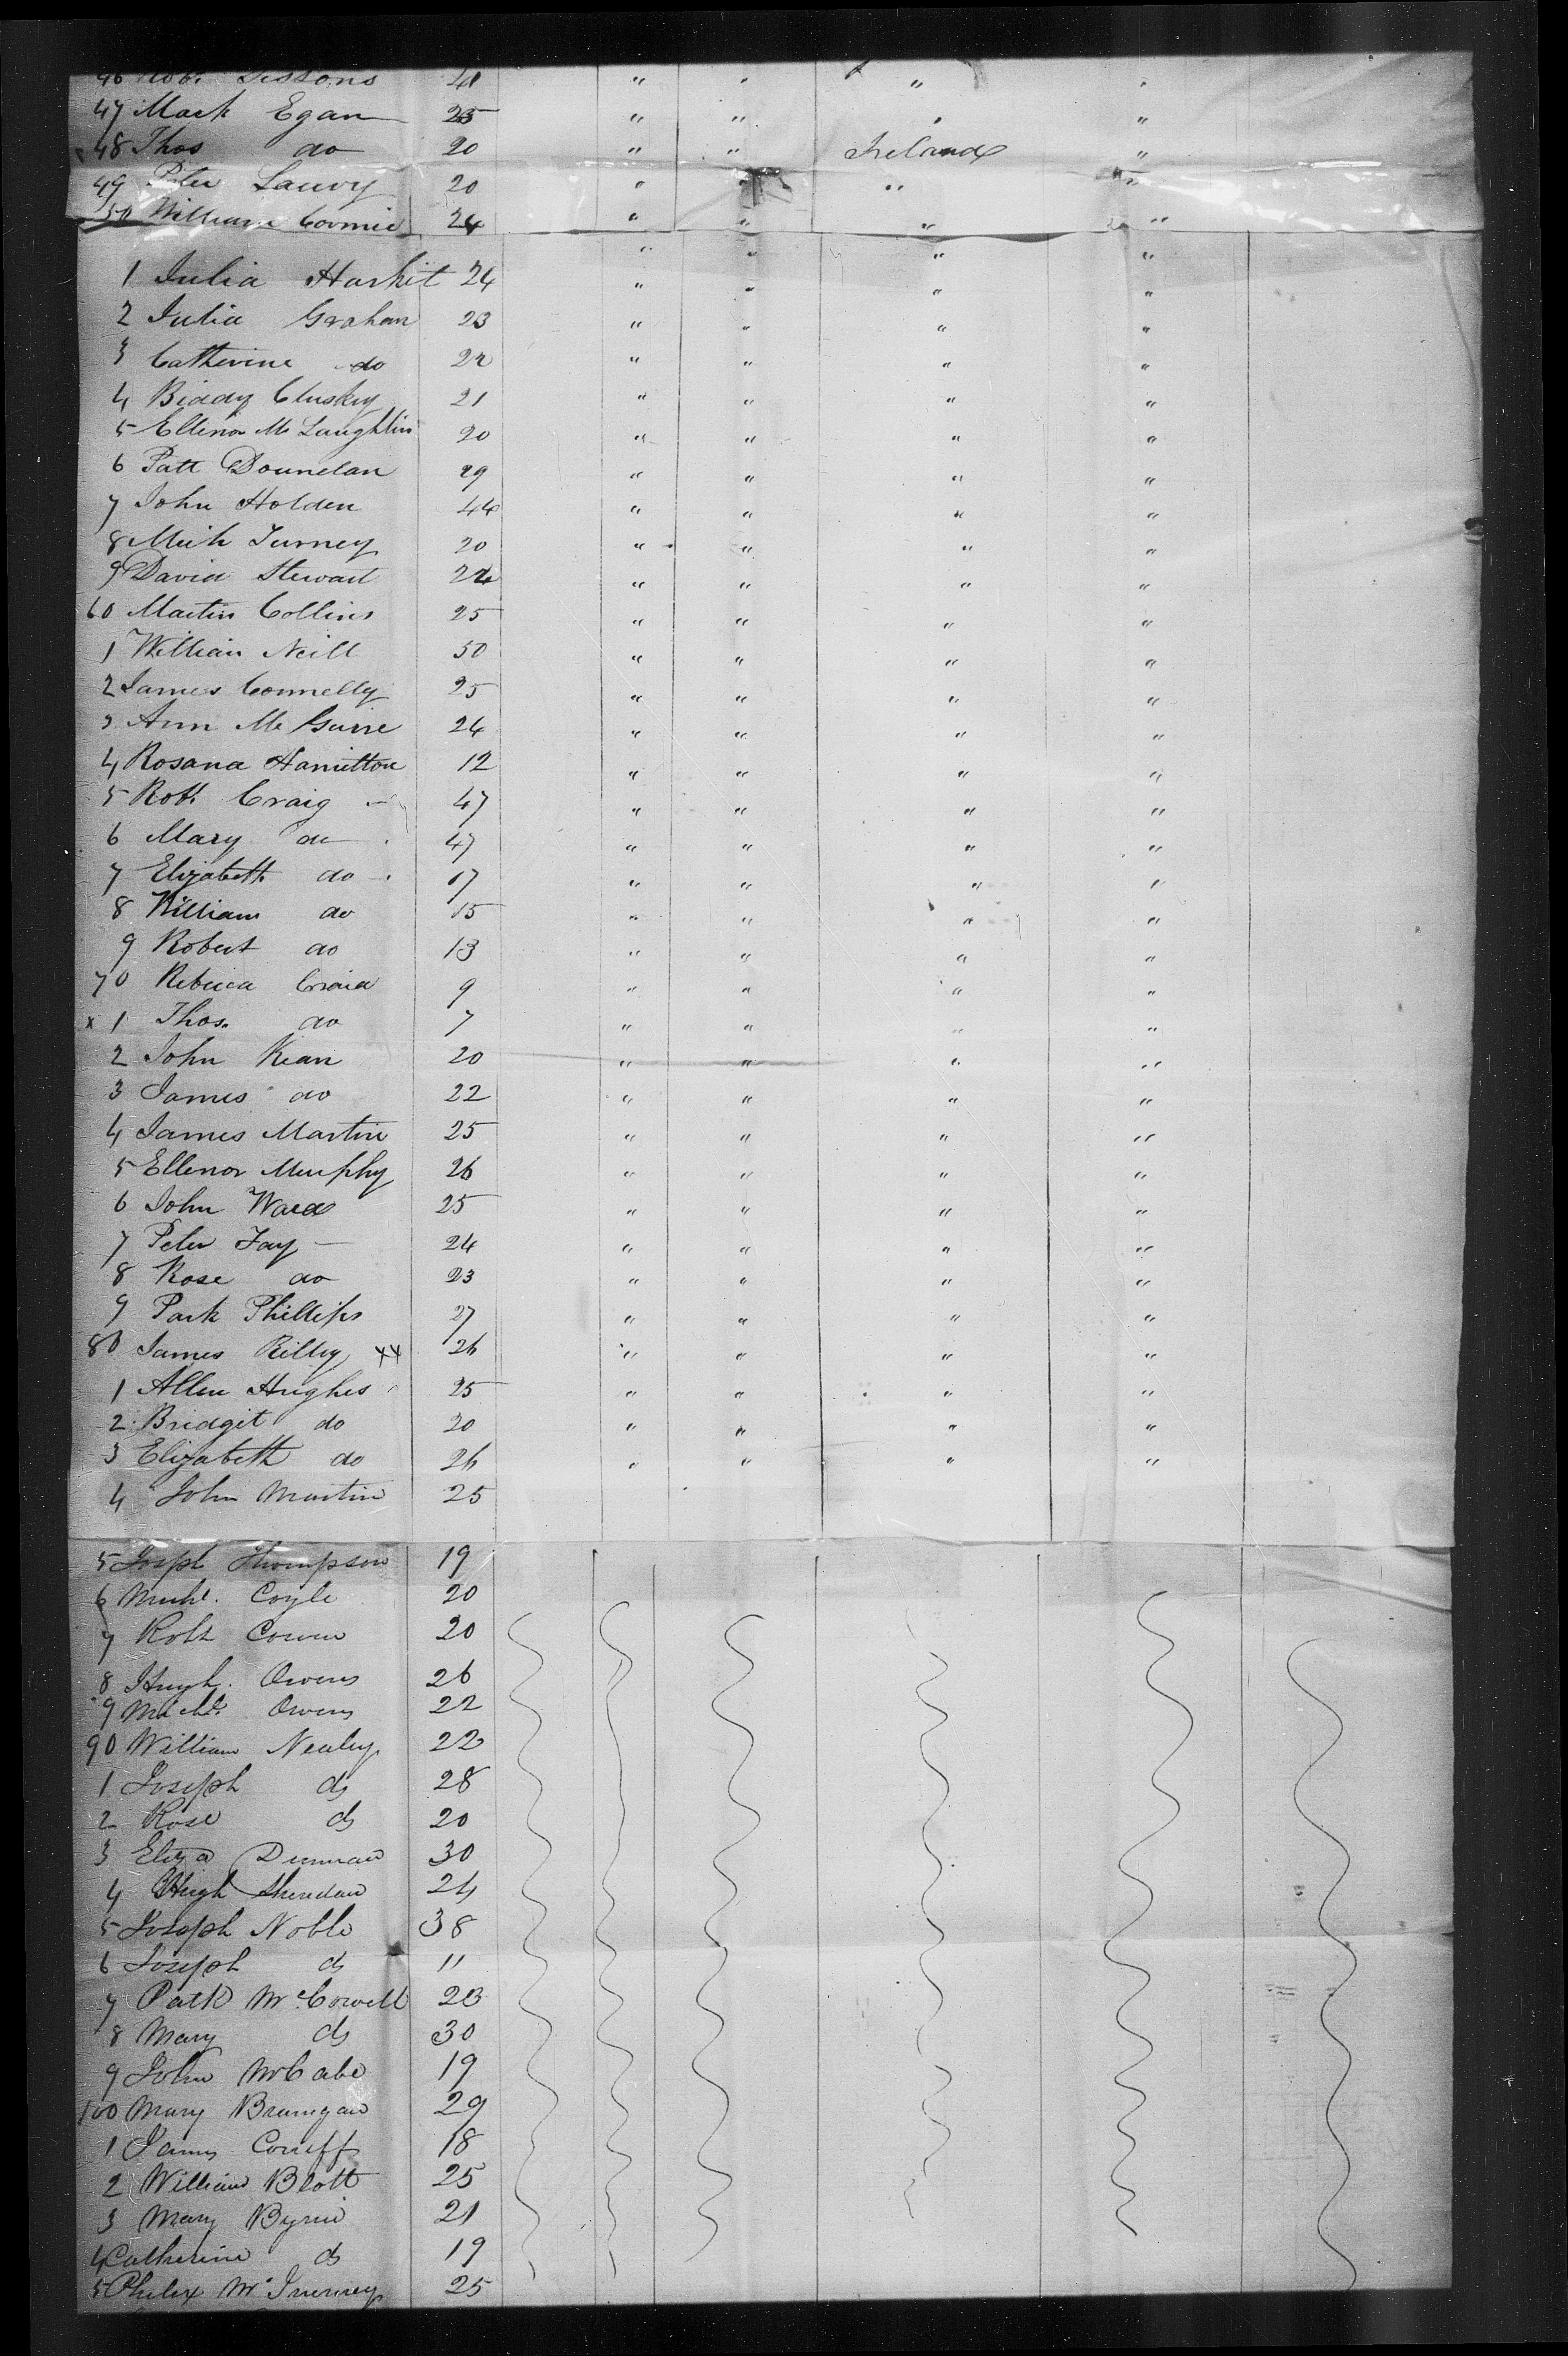 46 Rob. Sissons 41 " " " "
47 Mark Egan 25 " " " "
48 Thos do 20 " " Ireland "
49 Peter 20 " " " "
50 William 24 " " " "
1 Julia Harkit 24 " " " "
2 Julia Graham 23 " " " "
3 Catherine do 22 " " " "
4 Biddy Clusky 21 " " " "
5 Ellenor Mc Laughlin 20 " " " "
6 Patt Dounelan 29 " " " "
7 John Holden 44 " " " "
8 Mich Turney 20 " " " "
9 David Stewart 24 " " " "
60 Martin Collins 25 " " " "
1 William Neill 50 " " " "
2 James Connelly 25 " " " "
3 Ann Mc Guire 24 " " " "
4 Rosana Hamilton 12 " " " "
5 Robt. Craig 47 " " " "
6 Mary do 47 " " " "
7 Elizabeth do 17 " " " "
8 William do 15 " " " "
9 Robert do 13 " " " "
70 Rebecca Craig 9 " " " "
x 1 Thos. do 7 " " " "
2 John Kean 20 " " " "
3 James do 22 " " " "
4 James Martin 25 " " " "
5 Ellenor Murphy 26 " " " "
6 John Ward 25 " " " "
7 Peter Fay 24 " " " "
8 Rose do 23 " " " "
9 Park Phillips 27 " " " "
80 James Rilley xx 26 " " " "
1 Allen Hughes 25 " " " "
2 Bridgit do 20 " " " "
3 Elizabeth do 26 " " " "
4 John Martin 25
5 Josph Thompson 19
6 Michl. Coyle 20
7 Robt Cowen 20
8 Hugh. Owens 26
9 Michl. Owens 22
90 William Nealey 22
1 Joseph do 28
2 Rose do 20
3 Eliza 30
4 Hugh Sheridan 24
5 Joseph Noble 38
6 Joseph do 11
7 Patk 23
8 Mary do 30
9 John McCabe 19
100 Mary Branegan 29
1 James 18
2 William Blott 25
3 Mary Byrne 21
4 Catherine do 19
5 25